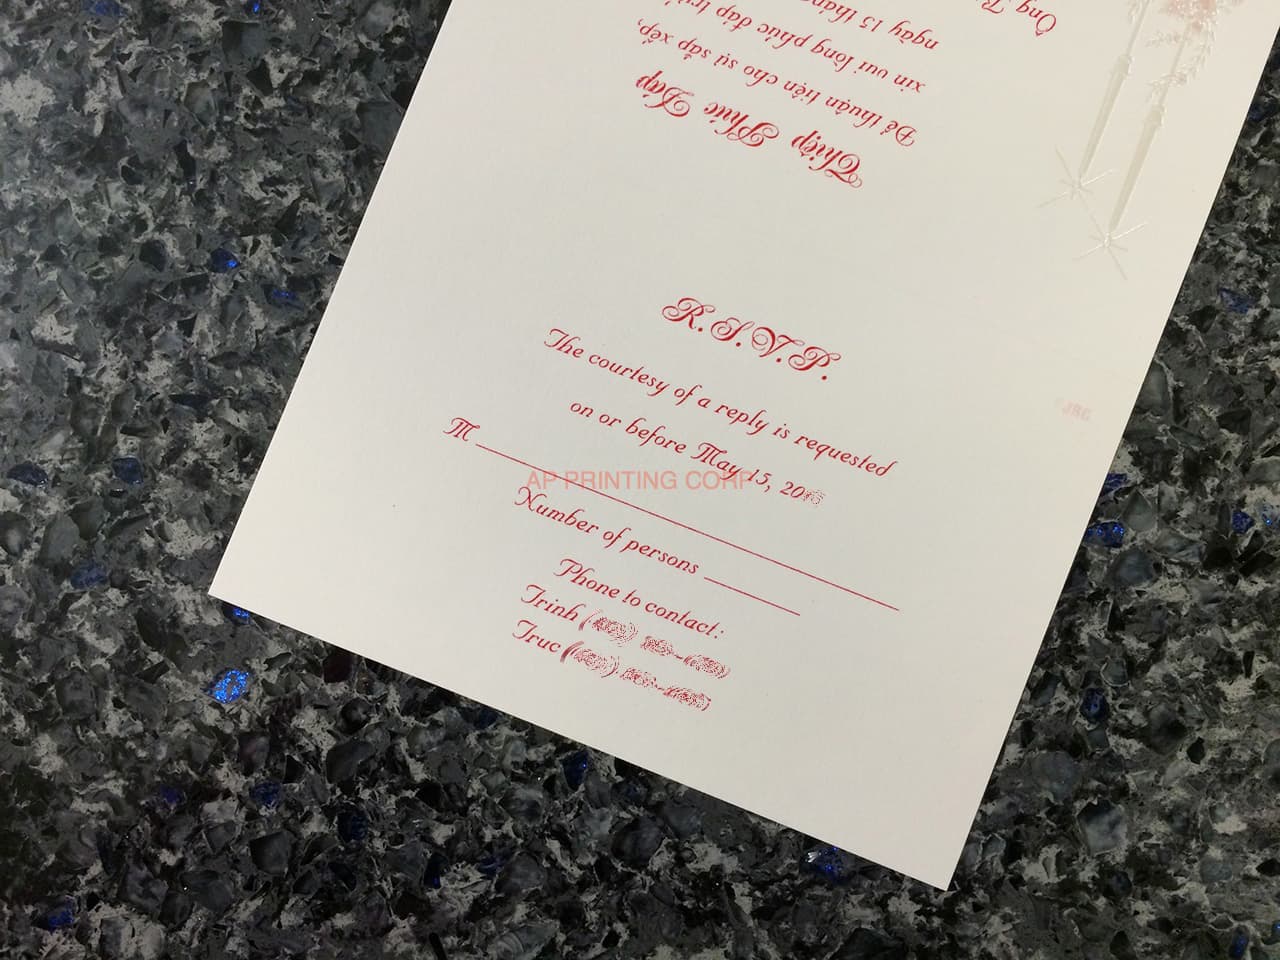 Thiệp Phúc Đáp
Để thuận tiện cho sự sắp xếp,
xin vui lòng phúc đáp
ngày 15 tháng
Ông
R.S.V.P.
The courtesy of a reply is requested
on or before May 15, 20
M
AP PRINTING CORP
Number of persons
Phone to contact:
Trinh
Truc